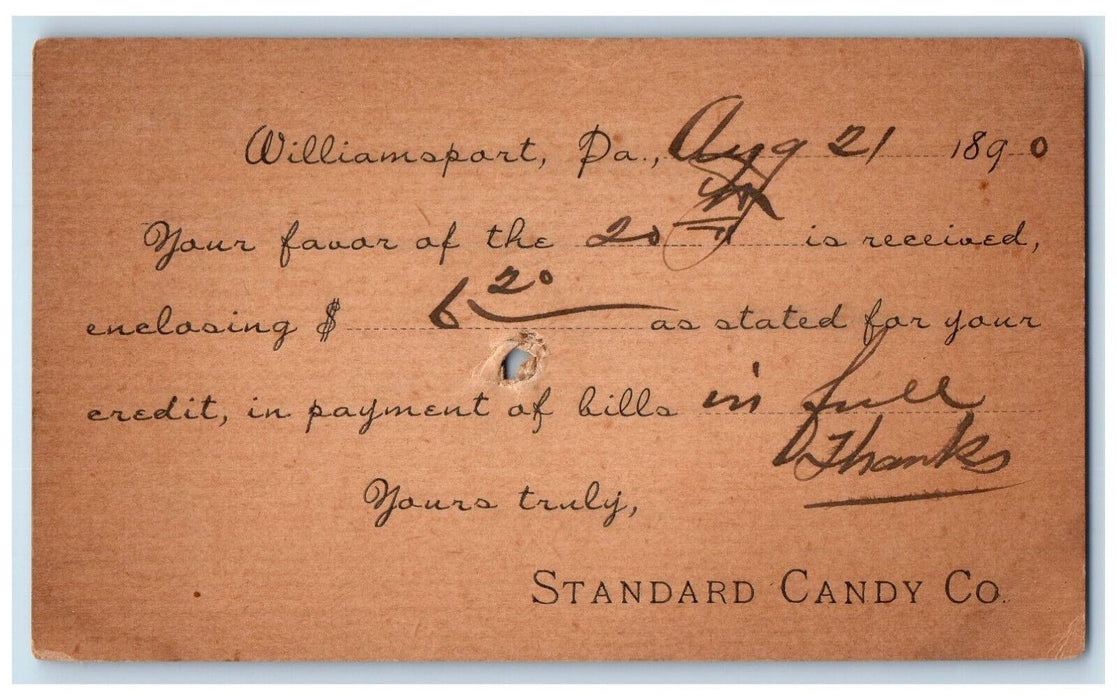 Williamsport, Pa., Aug 21 1890
Your favor of the 20 is received,
enclosing $ 6 20 as stated for your
credit, in payment of bills in full
Thanks
Yours truly,
STANDARD CANDY CO.